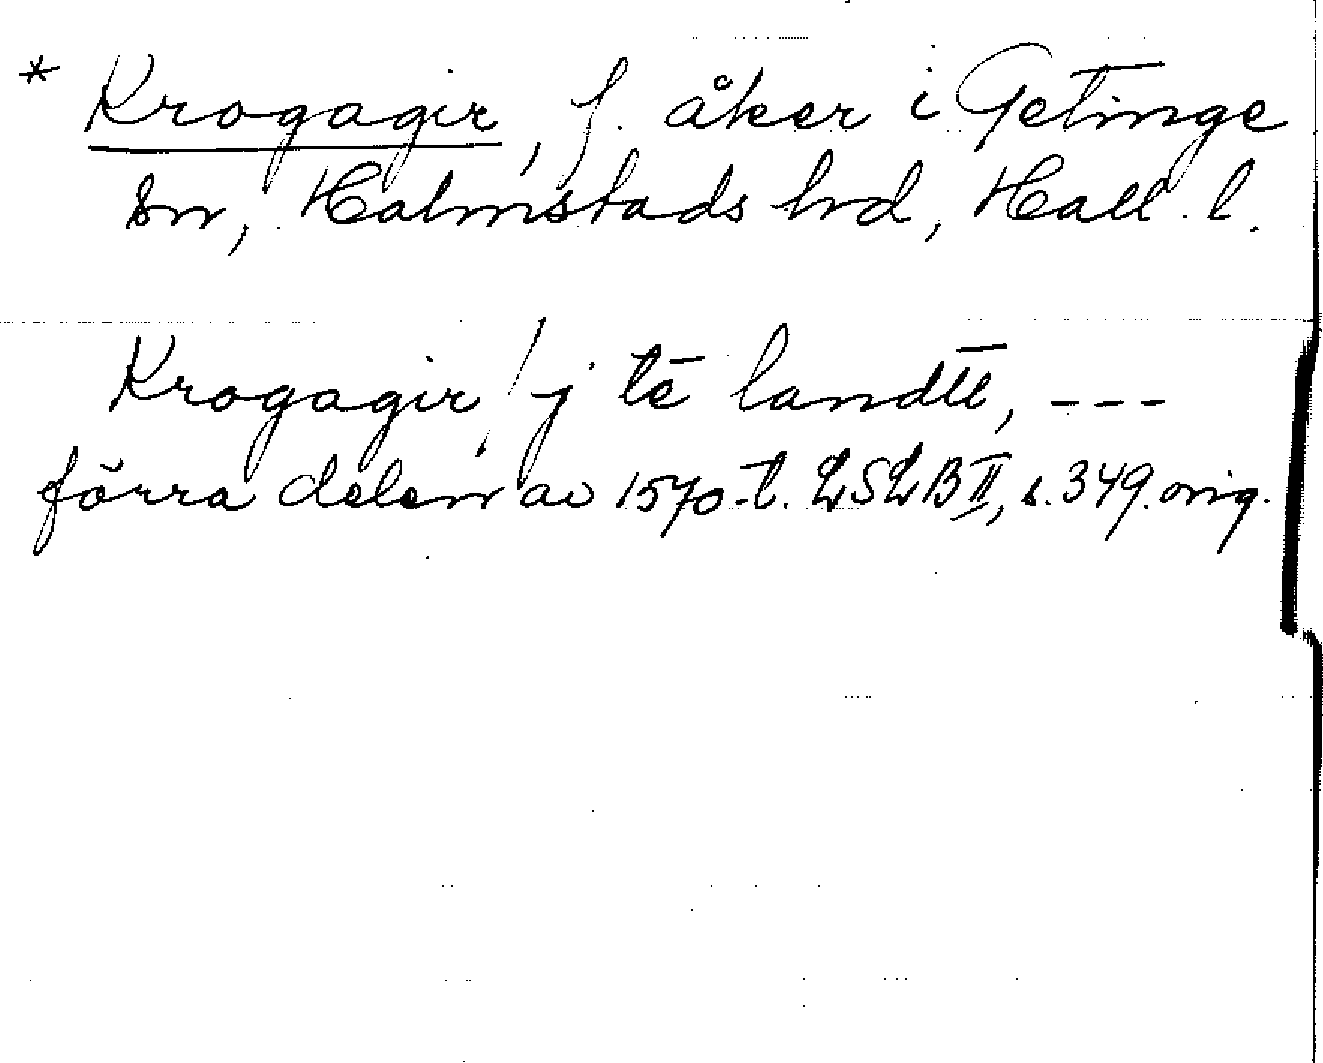 * Krogagir, f. åker i Getinge
sn, Halmstads hrd, Hall. l.
Krogagir / j tē landtē, ---
förra delen av 1570-t. LSLB II, s. 349. orig.